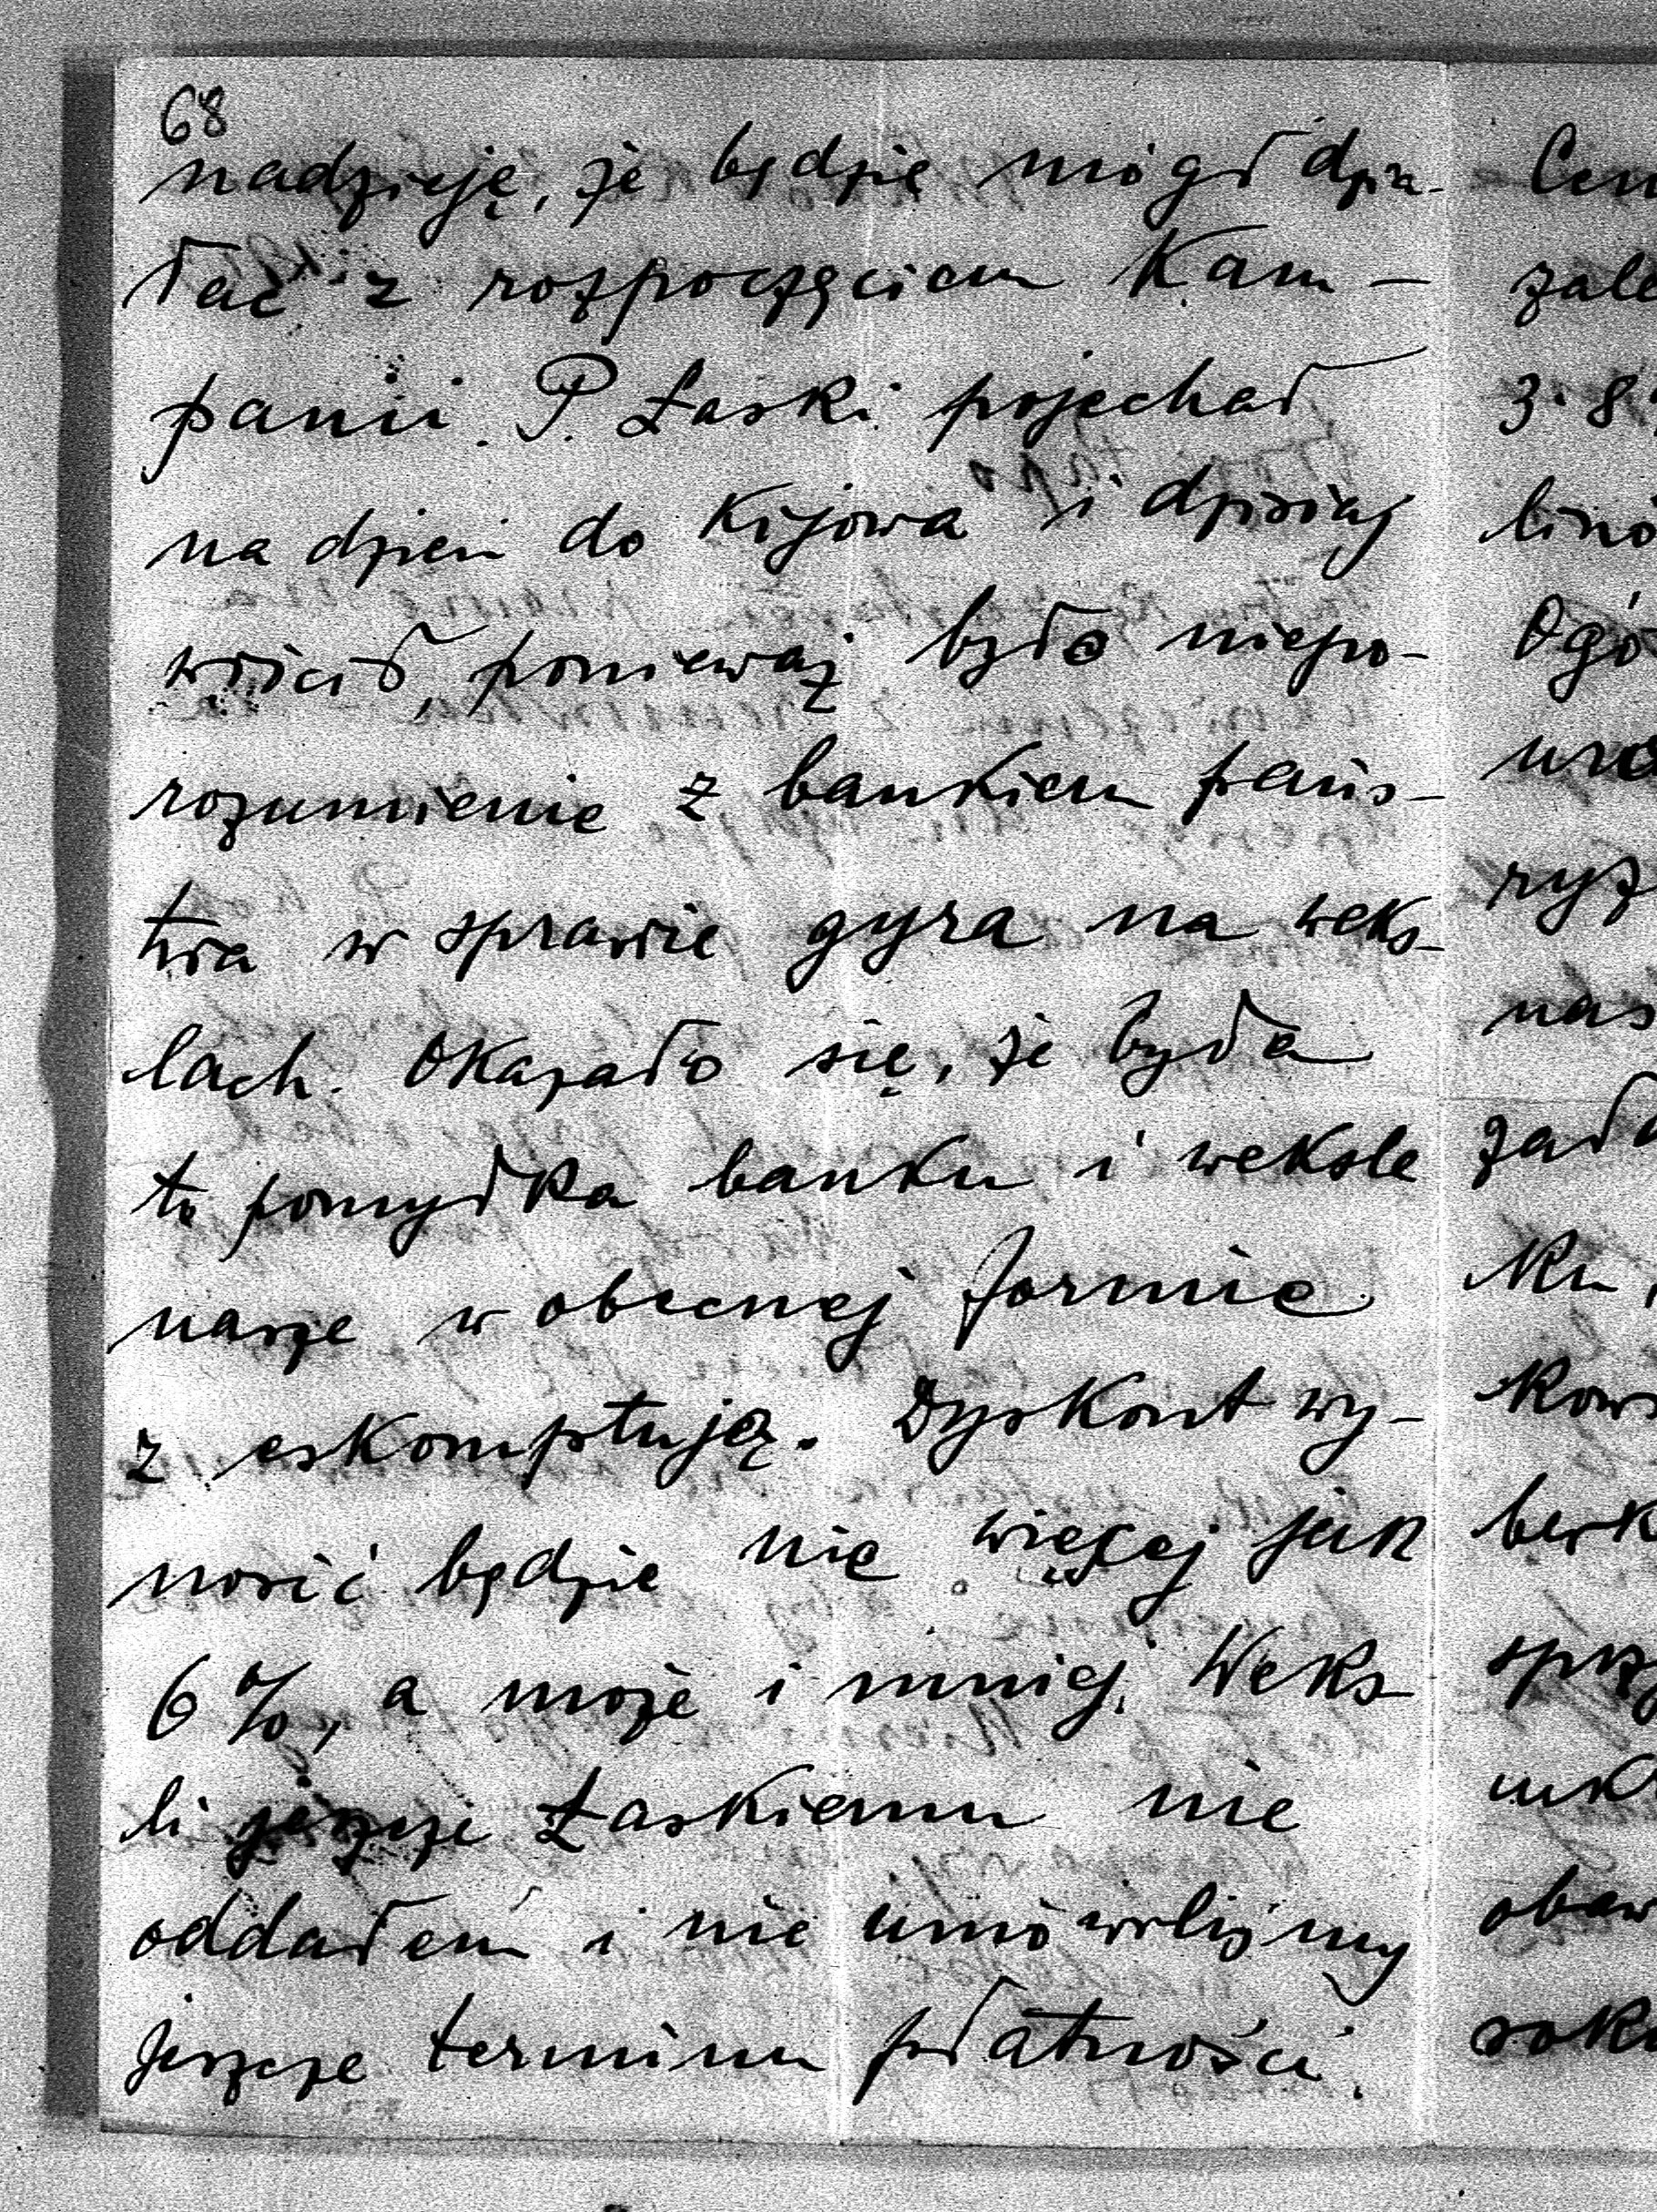 68
nadzieję, że będzie mógł dzia-
łać z rozpoczęciem Kam-
panii. P. Łaski pojechał
na dzień do Kijowa i dzisiaj
wrócił, ponieważ było niepo-
rozumienie z bankiem pańs-
twa w sprawie gyra na weks-
lach. Okazało się, że była
to pomyłka banku i weksle
nasze w obecnej formie
z eskomptują. Dyskont wy-
nosić będzie nie więcej jak
6%, a może i mniej. Weks-
li jeszcze Łaskiemu nie
oddałem i nie umówiliśmy
jeszcze terminu płatności.
zale
3.8
Ogó
nas